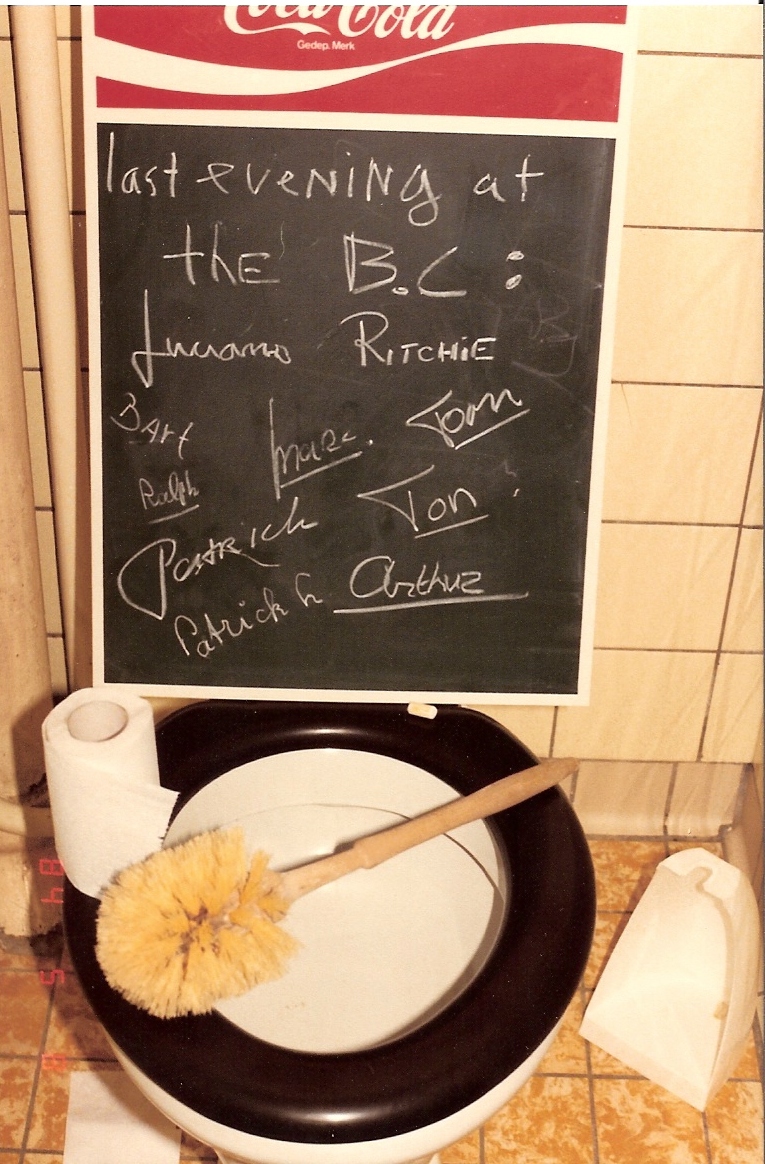 Coca-Cola
Gedep. Merk
last evening at
the B.C:
Luciano RITCHIE
Bart Marc. Tom
Ralph
Patrick Ton
Patrick h Arthur
84 5 8